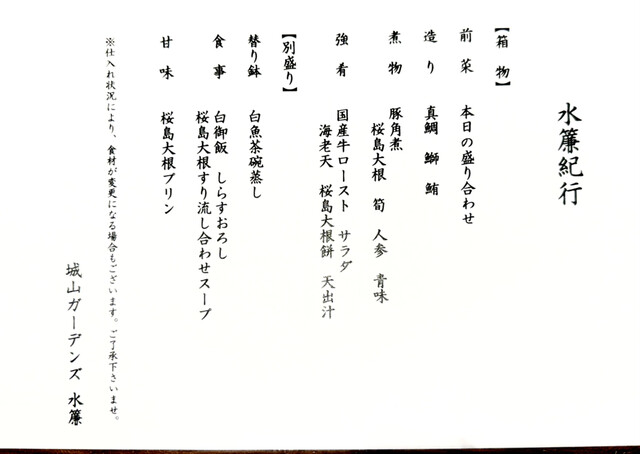 水簾紀行
【箱 物】
前 菜 本日の盛り合わせ
造 り 真鯛 鰤 鮪
煮 物 豚角煮
桜島大根 筍 人参 青味
強 肴 国産牛ロースト サラダ
海老天 桜島大根餅 天出汁
【別盛り】
替り鉢 白魚茶碗蒸し
食 事 白御飯 しらすおろし
桜島大根すり流し合わせスープ
甘 味 桜島大根プリン
※仕入れ状況により、食材が変更になる場合もございます。ご了承下さいませ。
城山ガーデンズ 水簾